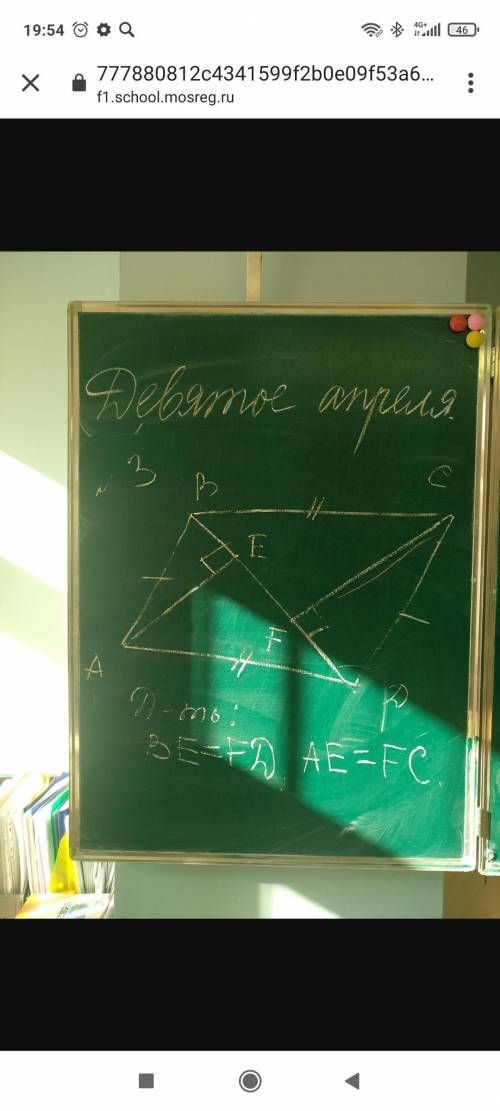 19:54 4G+ 46
777880812c4341599f2b0e09f53a6...
f1.school.mosreg.ru
Девятое апреля.
№ 3
B C
E
F
A D
Д-ть:
BE=FD, AE=FC.